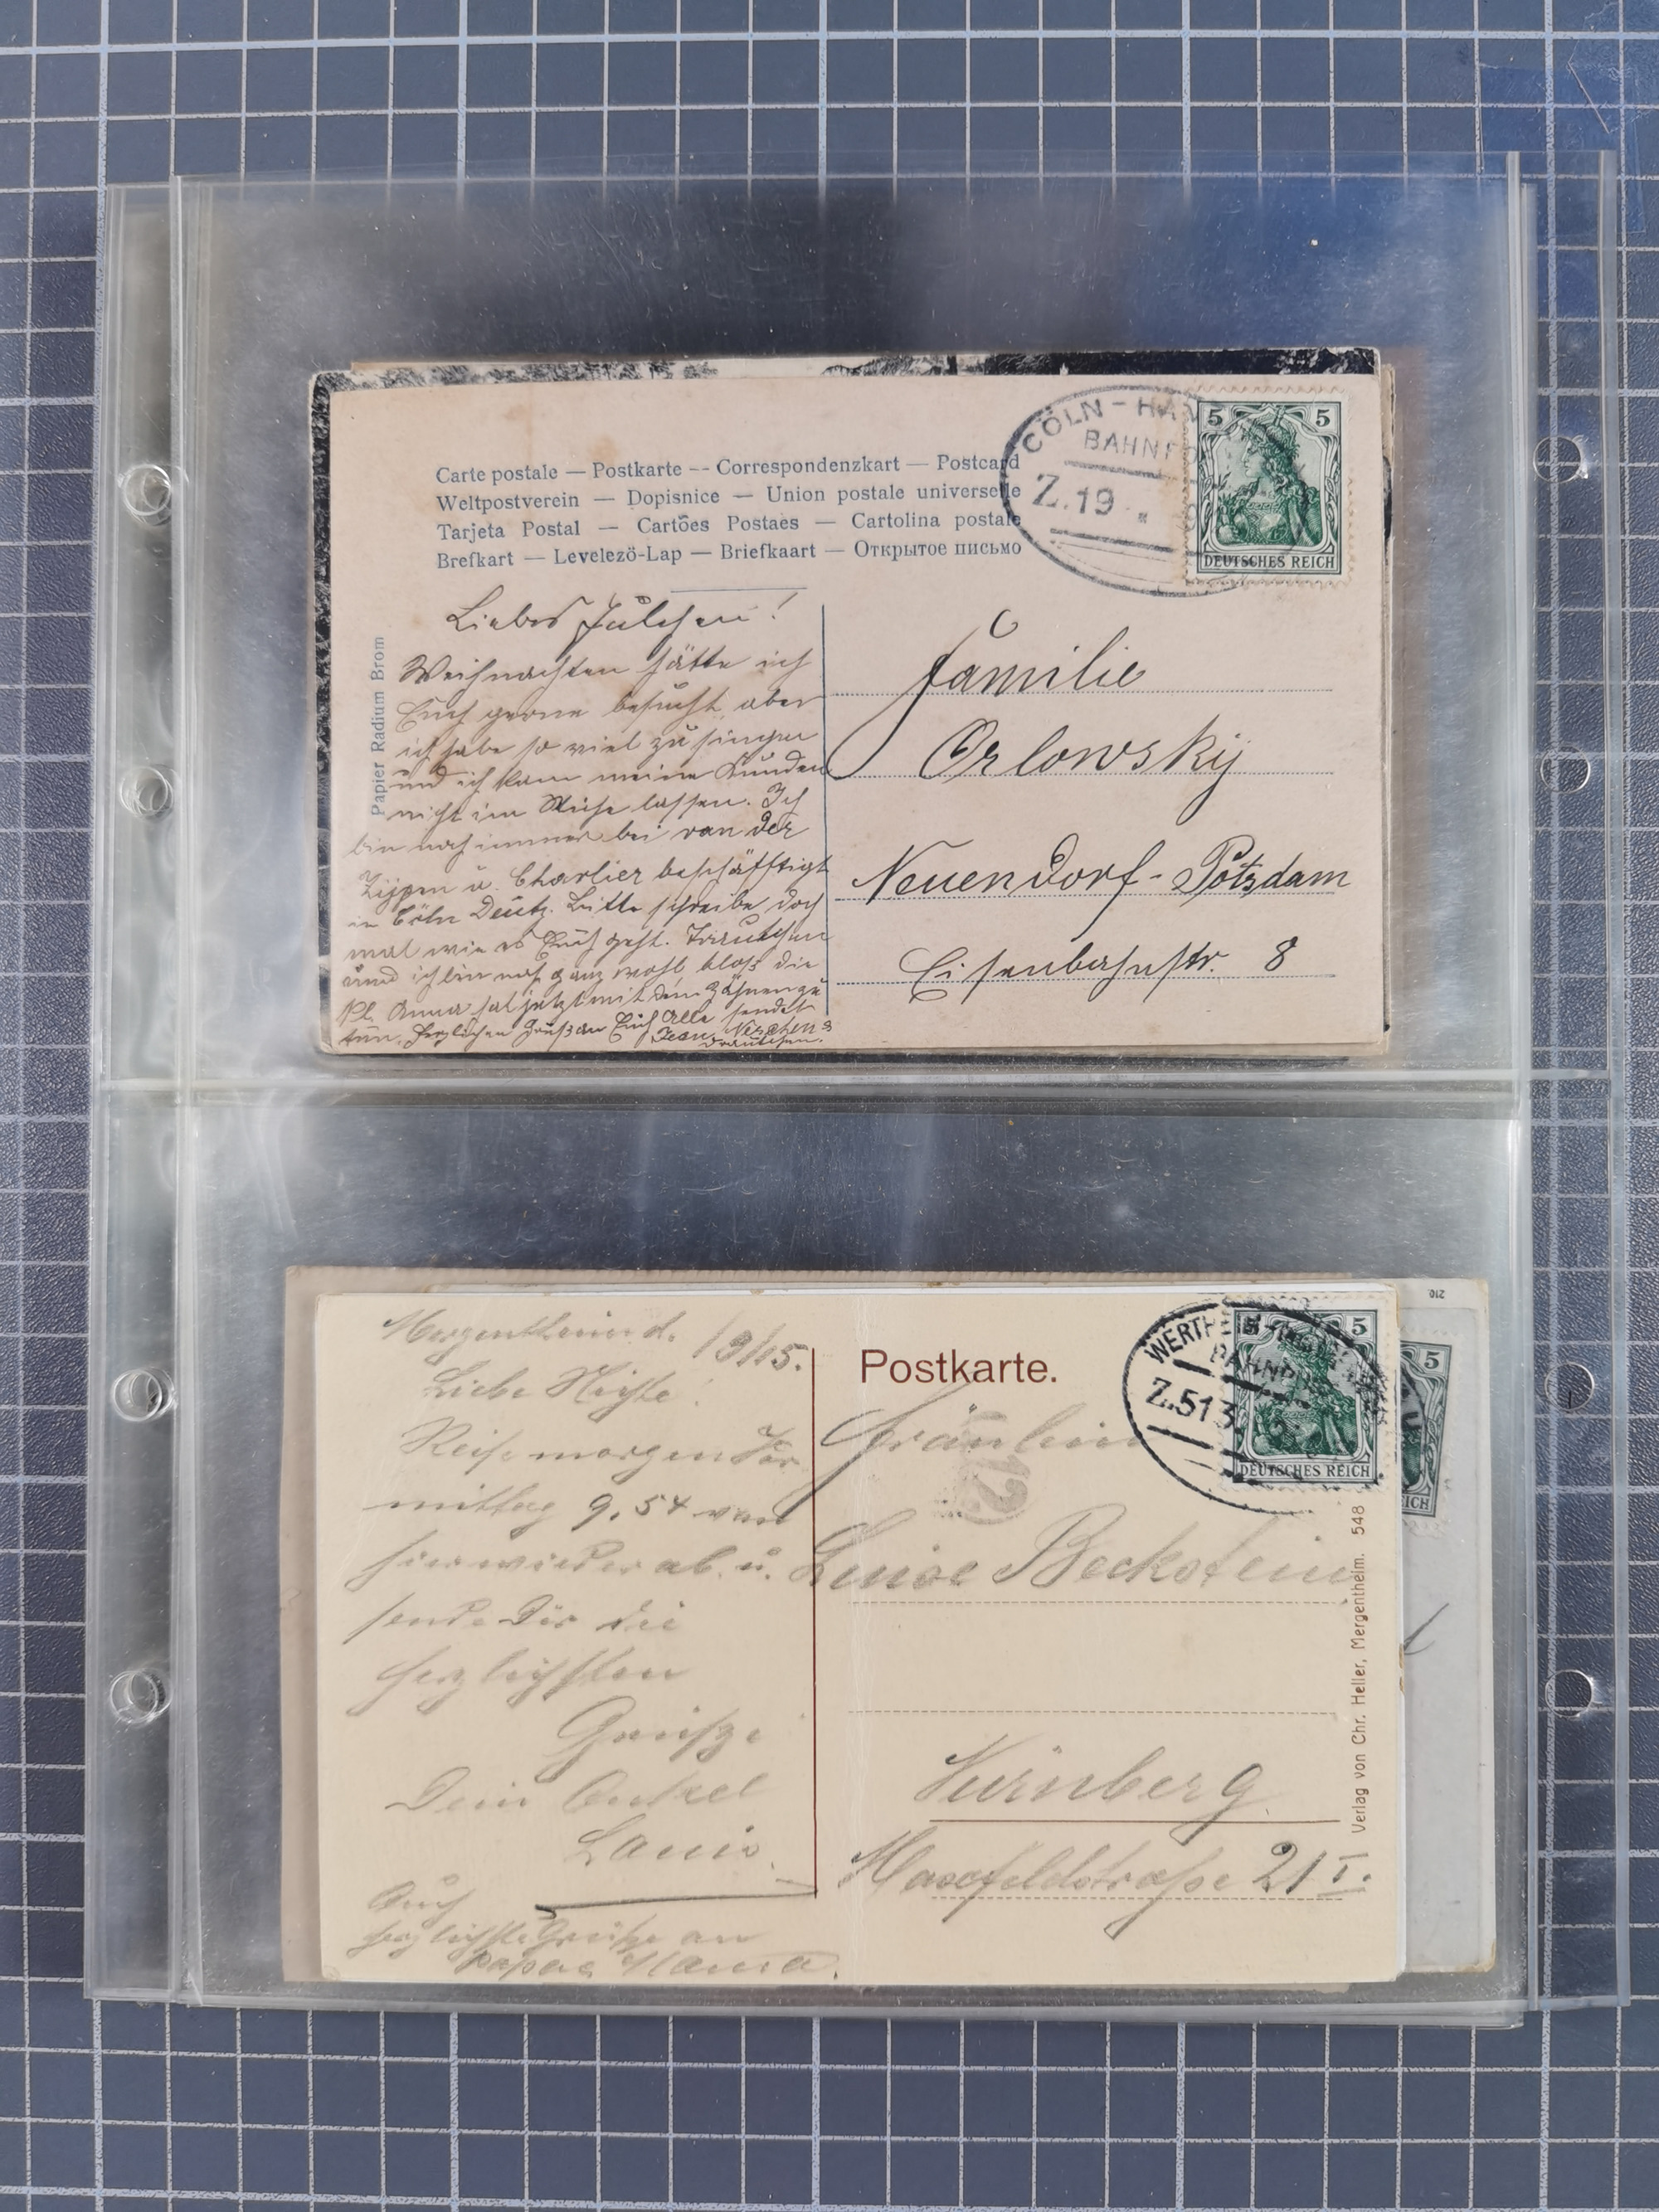 CÖLN - HA
BAHNP
Z.19
5 5
DEUTSCHES REICH
Carte postale — Postkarte -- Correspondenzkart — Postcard
Weltpostverein — Dopisnice — Union postale universelle
Tarjeta Postal — Cartões Postaes — Cartolina postale
Brefkart — Levelezö-Lap — Briefkaart — Открытое письмо
Papier Radium Brom
Liebes Julchen!
Weihnachten hätte ich
Euch gerne besucht, aber
ich habe so viel zu singen
und ich kann meine Kunden
nicht im Stiche lassen. Ich
bin noch immer bei van der
Zypen u. Charlier beschäfftigt
in Cöln Deutz. Bitte schreibe doch
mal wie es Euch geht. Trautchen
und ich sind noch ganz wohl bloß die
kl. Anna hat jetzt mit den Zähnen zu
tun. Herzlichen Gruß an Euch Alle sendet
Jean,
Trautchen.
Familie
Orlowsky
Neuendorf-Potsdam
Eisenbahnstr. 8
210
5
ICH
WERTHEIM
BAHNP
Z.513
5
DEUTSCHES REICH
Postkarte.
Mergentheim d. 13/15.
Liebe Nichte!
Reise morgen Vor
mittag 9,54 von
hier wieder ab. u.
sende Dir die
herzlichsten
Grüße
Dein Onkel
Louis.
Auch
herzlichste Grüße an
Papa & Mama.
Fräulein
12
Luise Beckstein
Nürnberg
Maxfeldstraße 21 I.
Verlag von Chr. Heller, Mergentheim. 548